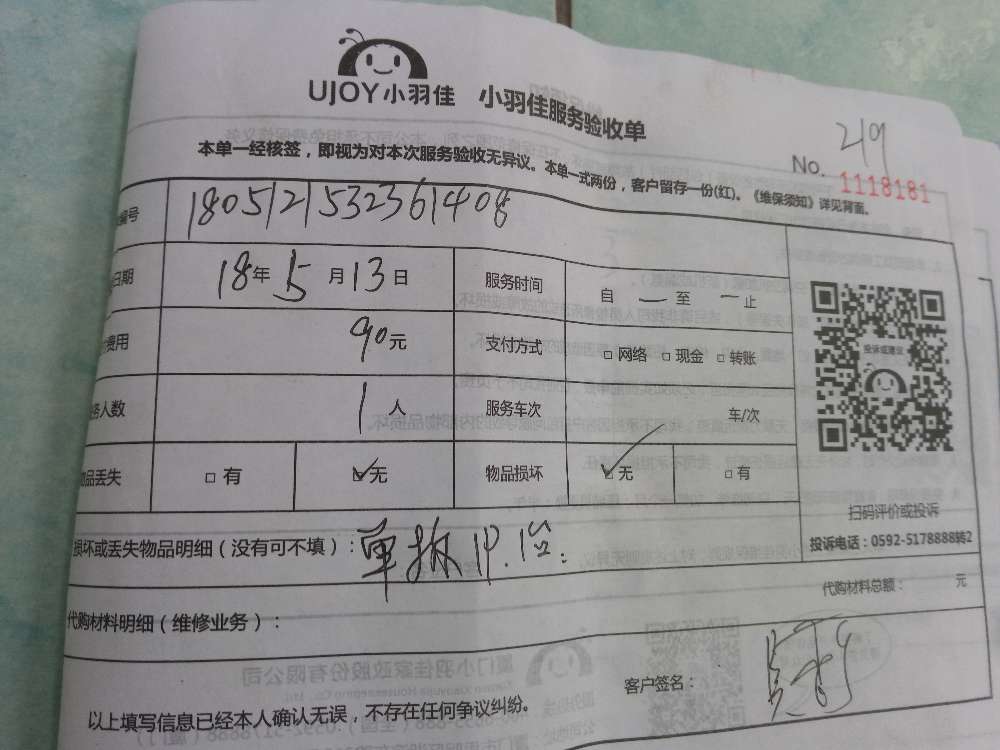 UJOY小羽佳 小羽佳服务验收单
219
No. 1118181
本单一经核签，即视为对本次服务验收无异议。本单一式两份，客户留存一份(红)。《维保须知》详见背面。
编号 1805121532361408
日期 18年5月13日 服务时间 自 — 至 — 止
费用 90元 支付方式 □网络 □现金 □转账
务人数 1人 服务车次 车/次
物品丢失 □有 ☑无 物品损坏 ☑无 □有
投诉或建议
扫码评价或投诉
投诉电话：0592-5178888转2
损坏或丢失物品明细（没有可不填）：单拆1P.1台.
代购材料总额： 元
代购材料明细（维修业务）：
客户签名：
以上填写信息已经本人确认无误，不存在任何争议纠纷。